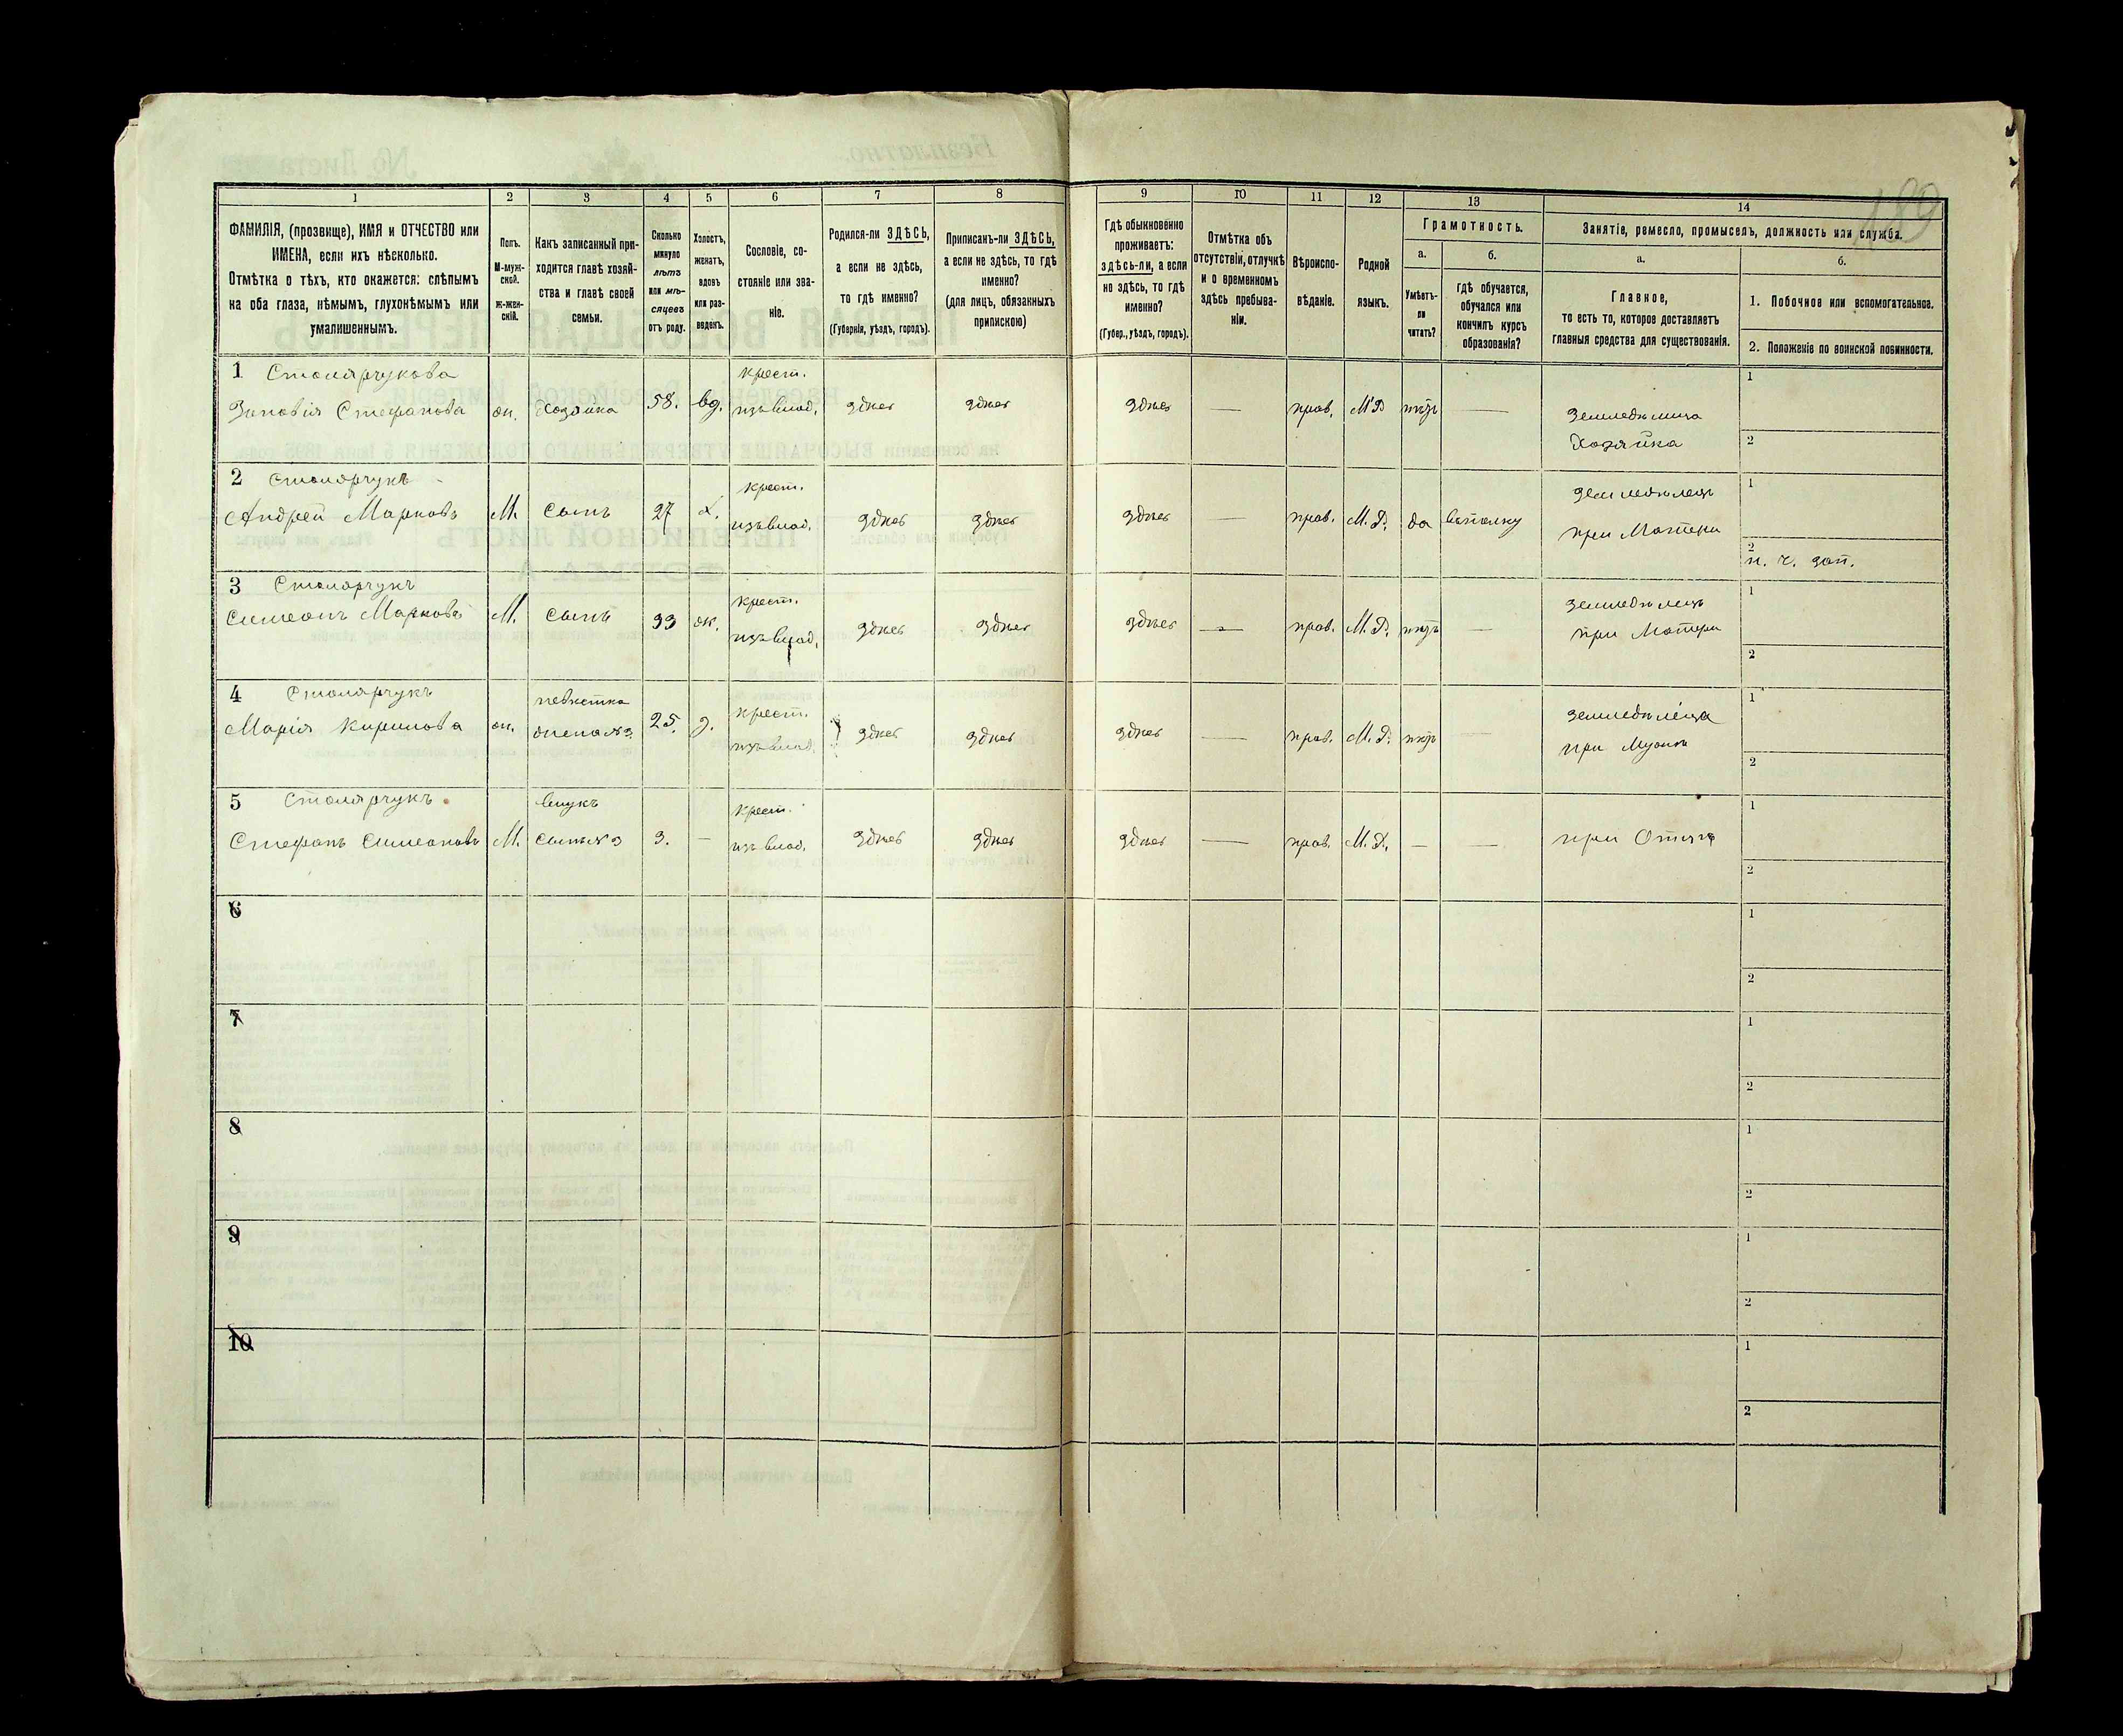 189
1
2
3
4
5
6
7
8
9
10
11
12
13
14
ФАМИЛІЯ, (прозвище), ИМЯ и ОТЧЕСТВО или
ИМЕНА, если ихъ нѣсколько.
Отмѣтка о тѣхъ, кто окажется: слѣпымъ
на оба глаза, нѣмымъ, глухонѣмымъ или
умалишеннымъ.
Полъ.
М-муж-
ской.
ж-жен-
скій.
Какъ записанный при-
ходится главѣ хозяй-
ства и главѣ своей
семьи.
Сколько
минуло
лѣтъ
или мѣ-
сяцевъ
отъ роду.
Холостъ,
женатъ,
вдовъ
или раз-
веденъ.
Сословіе, со-
стояніе или зва-
ніе.
Родился-ли ЗДѢСЬ,
а если не здѣсь,
то гдѣ именно?
(Губернія, уѣздъ, городъ).
Приписанъ-ли ЗДѢСЬ,
а если не здѣсь, то гдѣ
именно?
(для лицъ, обязанныхъ
припискою)
Гдѣ обыкновенно
проживаетъ:
здѣсь-ли, а если
не здѣсь, то гдѣ
именно?
(Губер., уѣздъ, городъ).
Отмѣтка объ
отсутствіи, отлучкѣ
и о временномъ
здѣсь пребыва-
ніи.
Вѣроиспо-
вѣданіе.
Родной
языкъ.
Грамотность.
а.
Умѣетъ-
ли
читать?
б.
гдѣ обучается,
обучался или
кончилъ курсъ
образованія?
Занятіе, ремесло, промыселъ, должность или служба.
а.
Главное,
то есть то, которое доставляетъ
главныя средства для существованія.
б.
1. Побочное или вспомогательное.
2. Положеніе по воинской повинности.
1 Столярчукова
Зиновія Стефанова
ж.
Хозяйка
58.
вд.
крест.
изъ влад.
здѣсь
здѣсь
здѣсь
—
прав.
М.Р.
нѣтъ
—
Земледѣлица
Хозяйка
1
2
2 Столярчукъ
Андрей Марковъ
М.
Сынъ
27
х.
крест.
изъ влад.
здѣсь
здѣсь
здѣсь
—
прав.
М.Р.
да
Земледѣлецъ
при Матери
1
2
3 Столярчукъ
Симеонъ Марковъ
М.
Сынъ
33
ж.
крест.
изъ влад.
здѣсь
здѣсь
здѣсь
—
прав.
М.Р.
нѣтъ
—
Земледѣлецъ
при Матери
1
2
4 Столярчукъ
Марія Кирилова
ж.
невѣстка
жена №3
25.
з.
крест.
изъ влад.
здѣсь
здѣсь
здѣсь
—
прав.
М.Р.
нѣтъ
—
Земледѣлица
при Мужѣ
1
2
5 Столярчукъ
Стефанъ Симеоновъ
М.
внукъ
сынъ №3
3.
—
крест.
изъ влад.
здѣсь
здѣсь
здѣсь
—
прав.
М.Р.
—
—
при Отцѣ
1
2
6
1
2
7
1
2
8
1
2
9
1
2
10
1
2